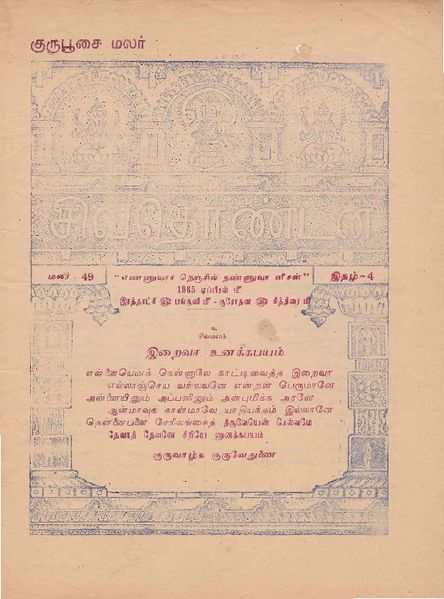 குருபூசை மலர்
சிவதொண்டன்
மலர் - 49
"எண்ணுவார் நெஞ்சில் நண்ணுவா னீசன்"
இதழ்-4
1985 ஏப்பிரல் மீ
இரத்தாட்சி ௵ பங்குனி மீ - குரோதன ௵ சித்திரை மீ
உ
சிவமயம்
இறைவா உனக்கபயம்
என்னையெனக் கென்னாலே காட்டிவைத்த இறைவா
எல்லாஞ்செய வல்லவனே என்றன் பெருமானே
அன்னையினும் அப்பனினும் அன்புமிக்க அரனே
ஆன்மாவுக் கான்மாவே யாதியந்தம் இல்லானே
தென்னைபனை சேரிலங்கைத் திருவேயென் செல்வமே
தேவாதி தேவனே சிறியே னுனக்கபயம்
குருவாழ்க குருவேதுணை